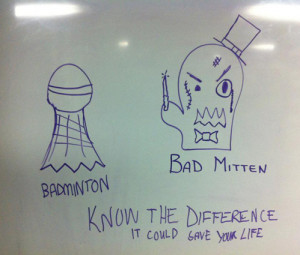 BAD MITTEN
BADMINTON
KNOW THE DIFFERENCE
IT COULD SAVE YOUR LIFE